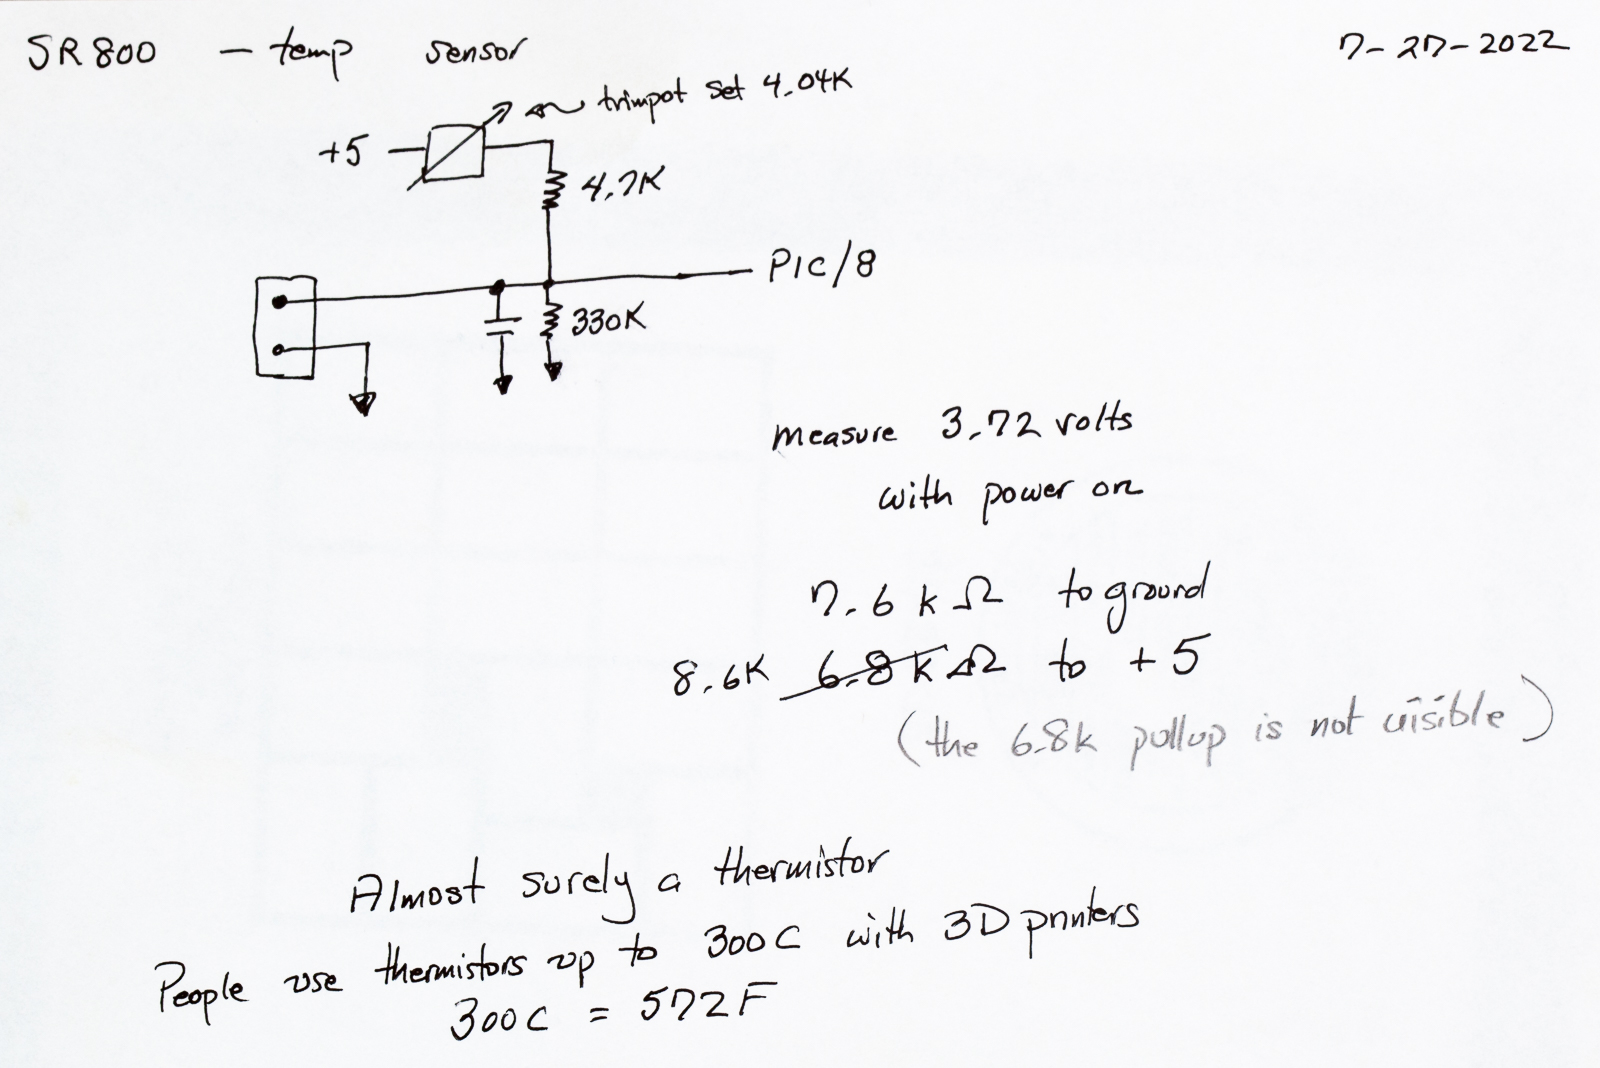 SR800 - temp sensor
7-27-2022
trimpot set 4.04K
+5
4.7K
PIC/8
330K
measure 3.72 volts
with power on
7.6 k Ω to ground
8.6K 6.8 k Ω to +5
(the 6.8k pullup is not visible)
Almost surely a thermistor
People use thermistors up to 300C with 3D printers
300C = 572F